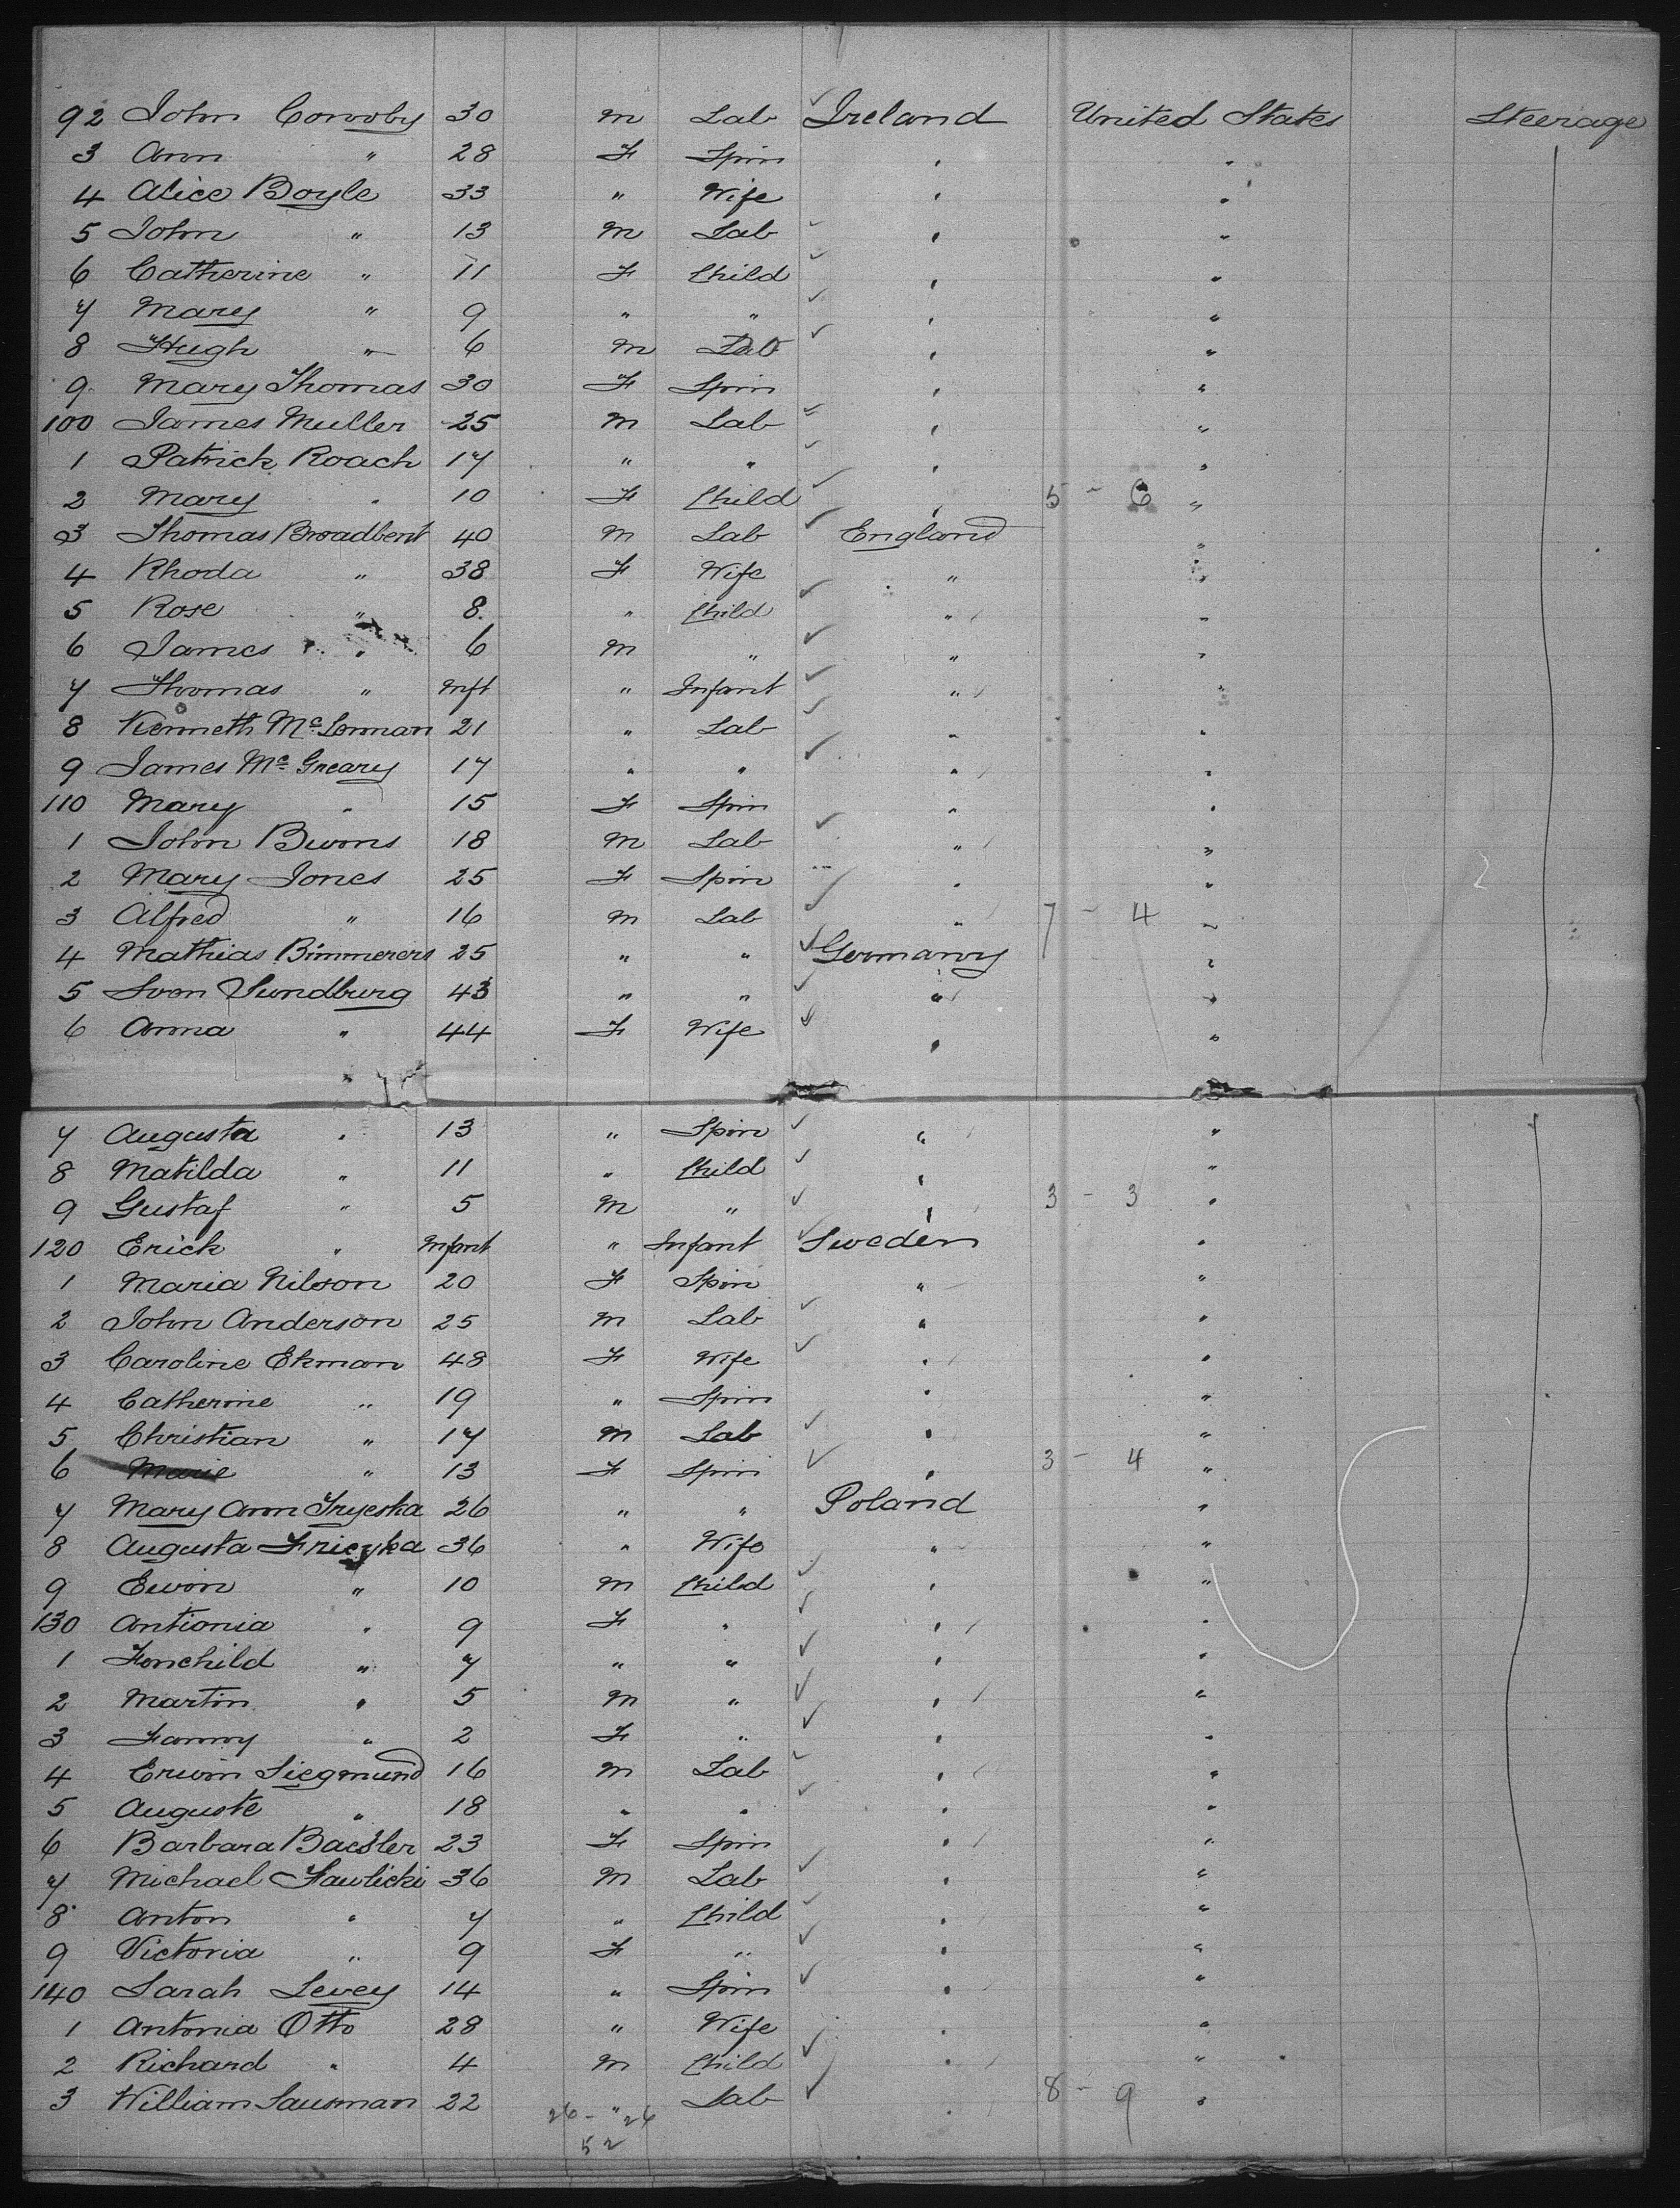 92 John Conroby 30 M Lab Ireland United States Steerage
3 Ann " 28 F Spin " "
4 Alice Boyle 33 " Wife " "
5 John " 13 M Lab " "
6 Catherine " 11 F Child " "
7 Mary " 9 " " " "
8 Hugh " 6 M Lab " "
9 Mary Thomas 30 F Spin " "
100 James Muller 25 M Lab " "
1 Patrick Roach 17 " " " "
2 Mary " 10 F Child " 5 - 6 "
3 Thomas Broadbent 40 M Lab England "
4 Rhoda " 38 F Wife " "
5 Rose " 8 " Child " "
6 James " 6 M " " "
7 Thomas " Inft " Infant " "
8 Kenneth Mc Lennan 21 " Lab " "
9 James Mc Greary 17 " " " "
110 Mary " 15 F Spin " "
1 John Burns 18 M Lab " "
2 Mary Jones 25 F Spin " "
3 Alfred " 16 M Lab " 7 - 4 "
4 Mathias Bimmerers 25 " " Germany "
5 Sven Sundburg 43 " " " "
6 Anna " 44 F Wife " "
7 Augusta " 13 " Spin " "
8 Matilda " 11 " Child " "
9 Gustaf " 5 M " " 3 - 3 "
120 Erick " Infant " Infant Sweden "
1 Maria Nilson 20 F Spin " "
2 John Anderson 25 M Lab " "
3 Caroline Ekman 48 F Wife " "
4 Catherine " 19 " Spin " "
5 Christian " 17 M Lab " "
6 Marie " 13 F Spin " 3 - 4 "
7 Mary Ann 26 " " Poland "
8 Augusta 36 " Wife " "
9 Ewin " 10 M Child " "
130 Antionia " 9 F " " "
1 Fonchild " 7 " " " "
2 Martin " 5 M " " "
3 Fanny " 2 F " " "
4 Erwin Siegmund 16 M Lab " "
5 Auguste " 18 " " " "
6 Barbara Baesler 23 F Spin " "
7 Michael Fawlicki 36 M Lab " "
8 Anton " 7 " Child " "
9 Victoria " 9 F " " "
140 Sarah Levey 14 " Spin " "
1 Antonia Otto 28 " Wife " "
2 Richard " 4 M Child " "
3 William Sausman 22 " Lab " 8 - 9 "
26 - 26
52